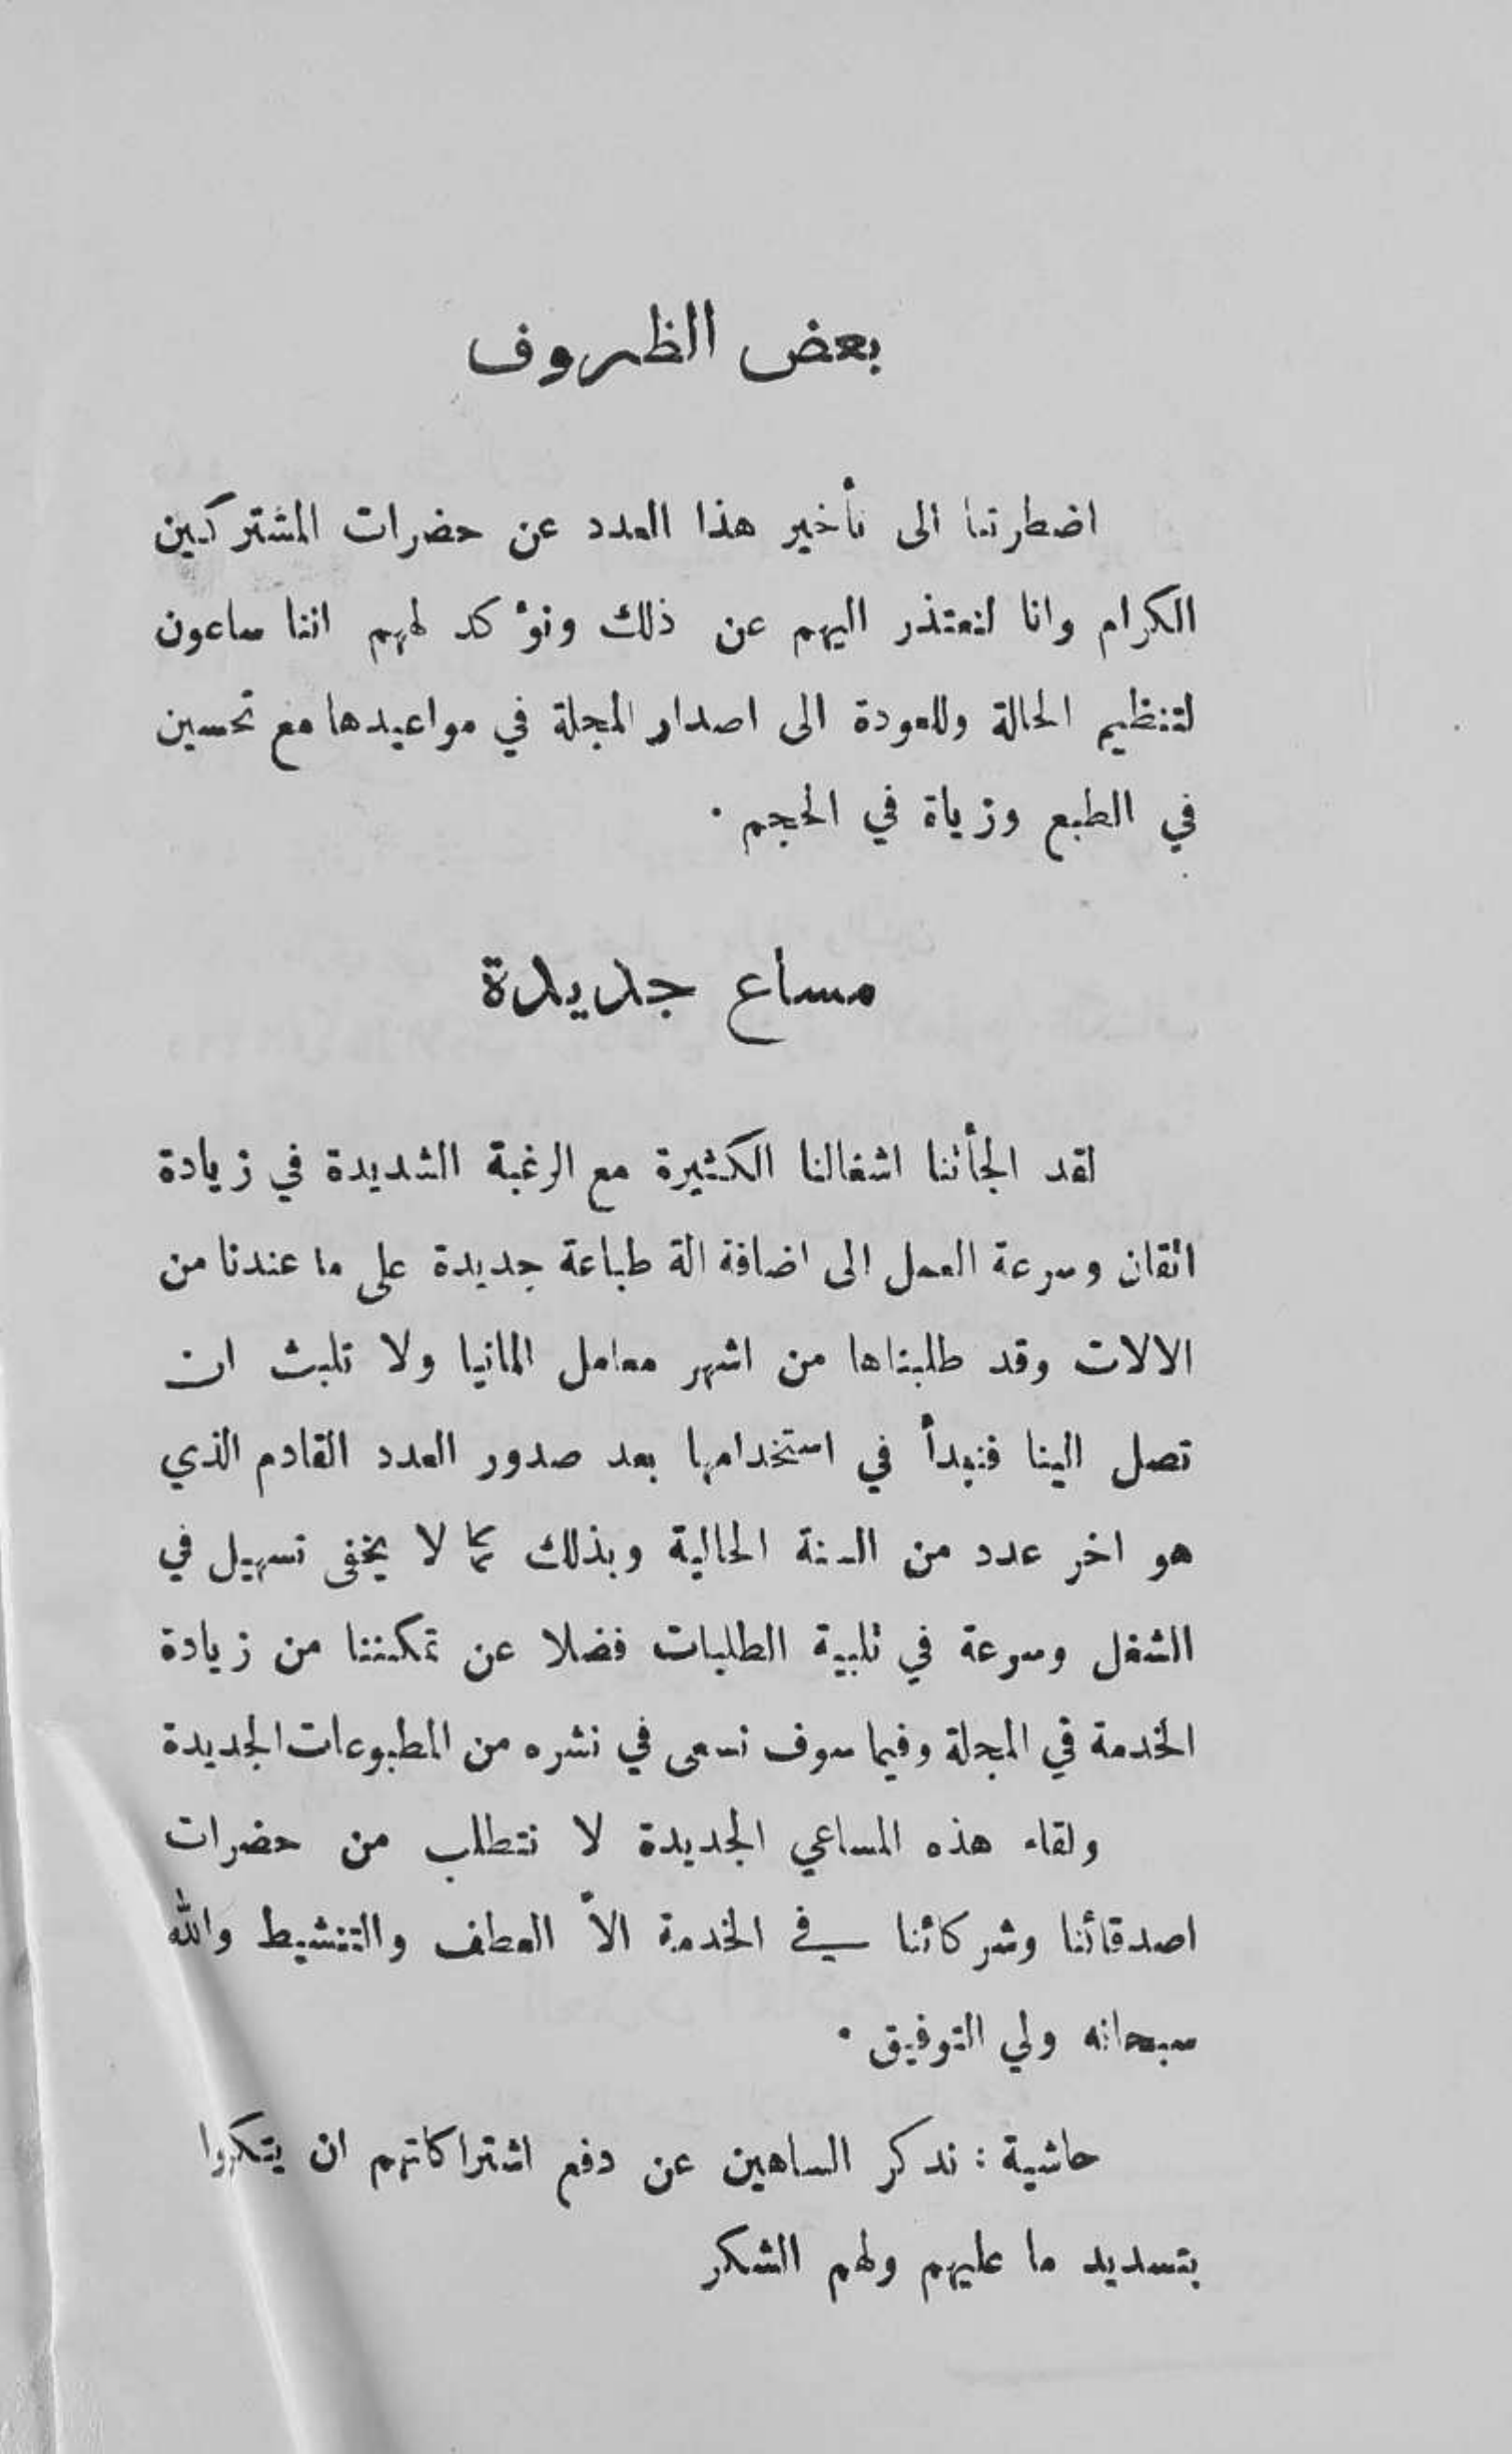 بعض الظروف
اضطرتنا الى تأخير هذا العدد عن حضرات المشتركين
الكرام وانا لنعتذر اليهم عن ذلك ونؤكد لهم اننا ساعون
لتنظيم الحالة وللعودة الى اصدار المجلة في مواعيدها مع تحسين
في الطبع وزياة في الحجم ·
مساع جديدة
لقد الجأتنا اشغالنا الكثيرة مع الرغبة الشديدة في زيادة
اتقان وسرعة العمل الى اضافة الة طباعة جديدة على ما عندنا من
الالات وقد طلبناها من اشهر معامل المانيا ولا تلبث ان
تصل الينا فنبدأ في استخدامها بعد صدور العدد القادم الذي
هو اخر عدد من السنة الحالية وبذلك كما لا يخفى تسهيل في
الشغل وسرعة في تلبية الطلبات فضلا عن تمكننا من زيادة
الخدمة في المجلة وفيما سوف نسعى في نشره من المطبوعات الجديدة
ولقاء هذه المساعي الجديدة لا نتطلب من حضرات
اصدقائنا وشركائنا في الخدمة الاّ العطف والتنشيط والله
سبحانه ولي التوفيق ·
حاشية : ندكر الساهين عن دفع اشتراكاتهم ان يتكروا
بتسديد ما عليهم ولهم الشكر